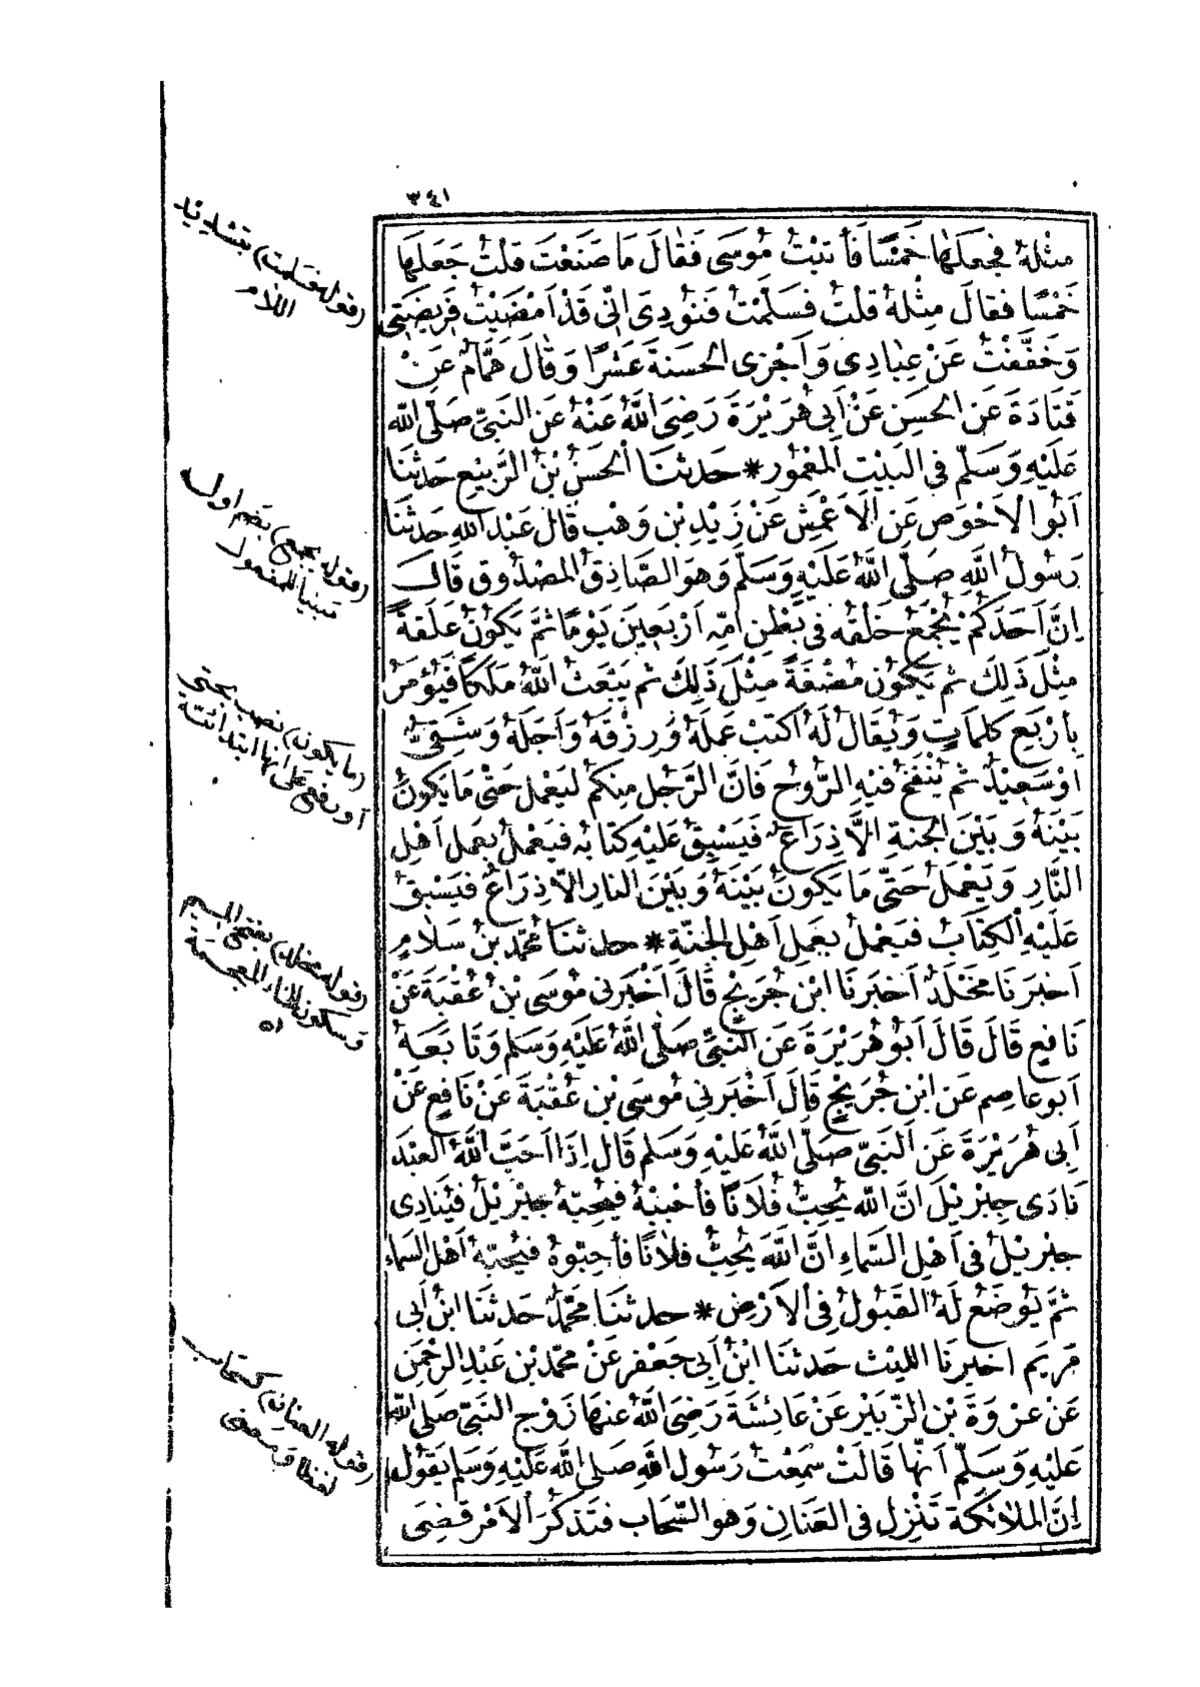 ٣٤١
مِثْلَهُ فَجَعَلَهَا خَمْسًا فَأَتَيْتُ مُوسَى فَقَالَ مَا صَنَعْتَ قُلْتُ جَعَلَهَا
خَمْسًا فَقَالَ مِثْلَهُ قُلْتُ فَسَلَّمْتُ فَنُودِىَ اِنِّى قَدْ اَمْضَيْتُ فَرِيضَتِى
وَخَفَّفْتُ عَنْ عِبَادِى وَاَجْزِى الْحَسَنَةَ عَشْرًا وَقَالَ هَمَّامٌ عَنْ
قَتَادَةَ عَنِ الْحَسَنِ عَنْ اَبِى هُرَيْرَةَ رَضِىَ اللّٰهُ عَنْهُ عَنِ النَّبِىِّ صَلَّى اللّٰه
عَلَيْهِ وَسَلَّمْ فِى الْبَيْتِ الْمَعْمُورِ * حَدثنَا الْحَسَنُ بْنُ الرَّبِيعِ حَدثنَا
اَبُو الْاَحْوَصِ عَنِ الْاَعْمَشِ عَنْ زَيْدِ بْنِ وَهْبٍ قَالَ عَبْدُ اللّٰهِ حَدثنَا
رَسُولُ اللّٰهِ صَلَّى اللّٰهُ عَلَيْهِ وَسَلَّمْ وَهُوَ الصَّادِقُ الْمَصْدُوقُ قَالَ
اِنَّ اَحَدَكُمْ يُجْمَعُ خَلْقُهُ فِى بَطْنِ اُمِّهِ اَرْبَعِينَ يَوْمًا ثُمَّ يَكُونُ عَلَقَةً
مِثْلَ ذَلِكَ ثُم يَكُونُ مُضْغَةً مِثْلَ ذَلِكَ ثُم يَبْعَثُ اللّٰهُ مَلَكًا فَيُؤْمَرُ
بِأَرْبَعِ كَلِمَاتٍ وَيُقَالُ لَهُ اُكْتُبْ عَمَلَهُ وَرِزْقَهُ وَاَجَلَهُ وَشَقِىٌّ
اَوْ سَعِيدٌ ثُم يُنْفَخُ فِيهِ الرُّوحُ فَاِنَّ الرَّجُلَ مِنْكُمْ لَيَعْمَلُ حَتَّى مَا يَكُونُ
بَيْنَهُ وَبَيْنَ الْجَنةِ اِلَّا ذِرَاعٌ فَيَسْبِقُ عَلَيْهِ كِتَابُهُ فَيَعْمَلُ بِعَمَلِ اَهْلِ
النَّارِ وَيَعْمَلُ حَتَّى مَا يَكُونُ بَيْنَهُ وَبَيْنَ النارِ اِلَّا ذِرَاعٌ فَيَسْبِقُ
عَلَيْهِ الْكِتَابُ فَيَعْمَلُ بِعَمَلِ اَهْلِ الْجَنَّةِ * حَدثنَا مُحَمَّدُ بْنُ سَلَامٍ
اَخبَرَنَا مَخْلَدٌ اَخبَرَنَا ابْنُ جُرَيْجٍ قَالَ اَخْبَرَنِى مُوسَى بْنُ عُقْبَةَ عَنْ
نَافِعٍ قَالَ قَالَ اَبُو هُرَيْرَةَ عَنِ النَّبِىِّ صَلَّى اللّٰهُ عَلَيْهِ وَسَلم وَتَابَعَهُ
اَبُو عَاصِم عَنِ ابْنِ جُرَيْجٍ قَالَ اَخْبَرَنِى مُوسَى بْنُ عُقْبَةَ عَنْ نَافِعٍ عَنْ
اَبِى هُرَيْرَةَ عَنِ النَّبِىِّ صَلَّى اللّٰهُ عَلَيْهِ وَسَلم قَالَ اِذَا اَحَبَّ اللّٰهُ الْعَبْدَ
نَادَى جِبْرِيلَ اِنَّ اللّٰه يُحِبُّ فُلَانًا فَأَحْبِبْهُ فَيُحِبُّهُ جِبْرِيلُ فَيُنَادِى
جِبْرِيلُ فِى اَهْلِ السَّمَاءِ اِنَّ اللّٰهَ يُحِبُّ فُلَانًا فَأَحِبُّوهُ فَيُحِبُّهُ اَهْلُ السَمَاءِ
ثُمَّ يُوضَعُ لَهُ الْقَبُولُ فِى الْاَرْضِ * حَدثنَا مُحَمَّدٌ حَدثنَا ابْنُ اَبِى
مَرْيَم اَخبَرنَا اللَّيْثُ حَدثنَا ابْنُ اَبِى جَعْفَرٍ عَنْ مُحَمَّدِ بْنِ عَبْدِ الرَّحْمَنِ
عَنْ عُرْوَةَ بْنِ الزُّبَيْرِ عَنْ عَائِشَةَ رَضِىَ اللّٰهُ عَنهَا زَوْجِ النَّبِىِّ صَلى اللّٰه
عَلَيْهِ وَسَلَّمْ اَنَّهَا قَالَتْ سَمِعْتُ رَسُولَ اللّٰهِ صَلى اللّٰه عَلَيْهِ وَسَلم يَقُولُ
اِنَّ الْمَلَائِكَةَ تَنْزِلُ فِى الْعَنَانِ وَهُوَ السَّحَابُ فَتَذْكُرُ الْاَمْرَ قُضِىَ
(قوله فسلمت) بتشديد
اللام
(قوله يجمع) بضم اوله
مبنيا للمفعول
(ما يكون) نصب بحتى
او رفع على انها ابتدائية
(قوله مخلد) بفتح الميم
وسكون الخاء المعجمة
اه
(قوله العنان) كسحاب
لفظا ومعنى